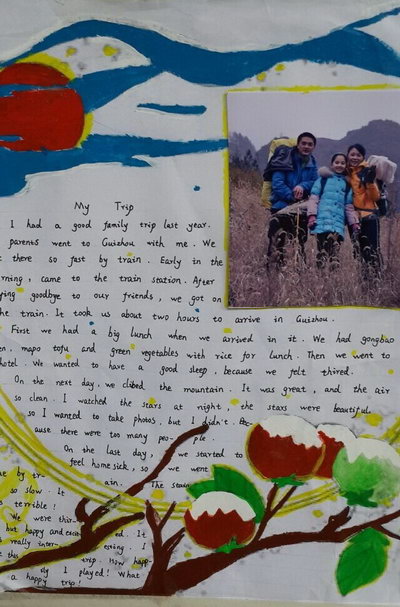 My Trip
I had a good family trip last year.
parents went to Guizhou with me. We
there so fast by train. Early in the
rning, came to the train station. After
ying goodbye to our friends, we got on
the train. It took us about two hours to arrive in Guizhou.
First we had a big lunch when we arrived in it. We had gongbao
en, mapo tofu and green vegetables with rice for lunch. Then we went to
hotel. We wanted to have a good sleep, because we felt thired.
On the next day, we clibed the mountain. It was great, and the air
so clean. I watched the stars at night, the stars were beautiful,
so I wanted to take photos, but I didn't. Bec-
ause there were too many peo- ple.
On the last day, we started to
feel homesick, so we went
me by tr- ain. The
so slow. It
terrible!
We were thir-
but happy and exci ed. It
really inter- esting. I
this trip. How happ-
ly I played! What
a happy trip!